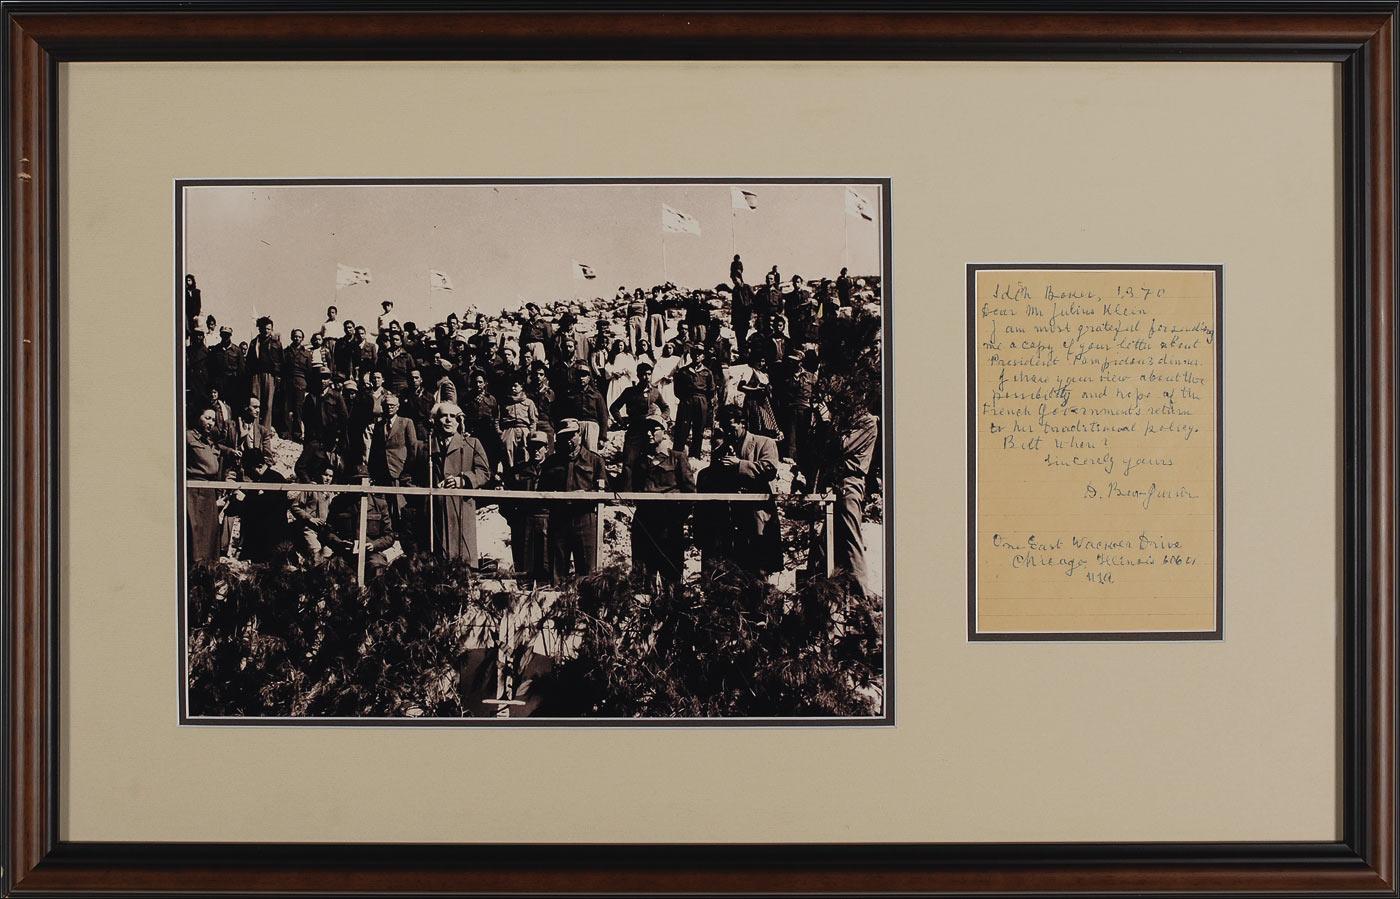 Sdeh Boker, 1970
Dear Mr Julius Klein
I am most grateful for sending
me a copy of your letter about
President Pompidou's dinner.
I share your view about the
possibility and hope of the
French Government's return
to her traditional policy.
But when?
Sincerely yours
D. Ben-Gurion
One East Wacker Drive
Chicago, Illinois 60601
USA